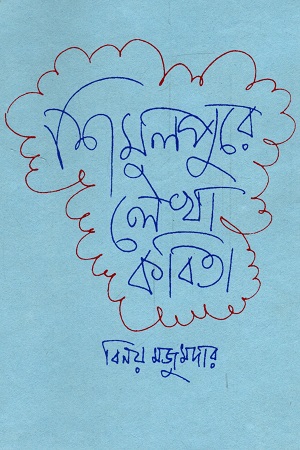 শিমুলপুরে
লেখা
কবিতা
বিনয় মজুমদার